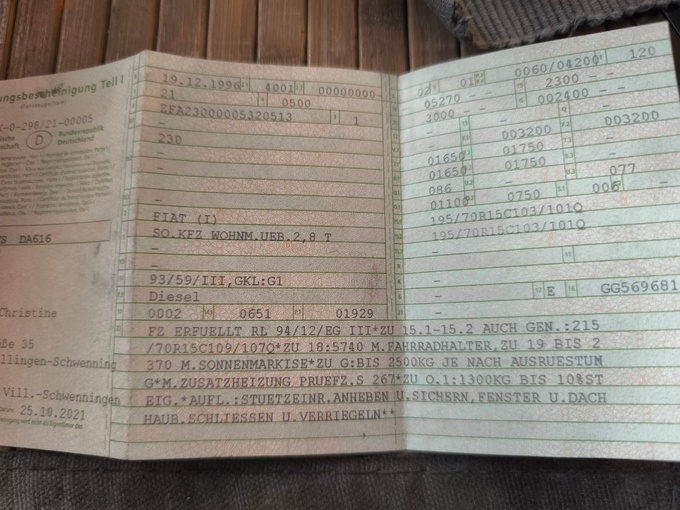 ungsbescheinigung Teil I
-0-298/21-00005
D Bundesrepublik
Deutschland
DA616
Christine
ße 35
llingen-Schwenning
Vill.-Schwenningen
25.10.2021
19.12.1996 4001 00000000-
21 0500
ZFA23000005320513 1
-
230
-
-
-
FIAT (I)
SO.KFZ WOHNM.UEB.2,8 T
-
-
93/59/III,GKL:G1
Diesel
0002 0651 01929
02 01 0060/04200 120
05270 - - 2300 - -
3000 - - 002400 - -
- -
- 003200 003200
01650 01750 -
01650 01750 -
086 - 077
01100 0750 006
195/70R15C103/101Q
195/70R15C103/101Q
-
-
- E GG569681
FZ ERFUELLT RL 94/12/EG III*ZU 15.1-15.2 AUCH GEN.:215
/70R15C109/107Q*ZU 18:5740 M.FAHRRADHALTER,ZU 19 BIS 2
370 M.SONNENMARKISE*ZU G:BIS 2500KG JE NACH AUSRUESTUN
G*M.ZUSATZHEIZUNG PRUEFZ.S 267*ZU O.1:1300KG BIS 10%ST
EIG.*AUFL.:STUETZEINR.ANHEBEN U.SICHERN,FENSTER U.DACH
HAUB.SCHLIESSEN U.VERRIEGELN**